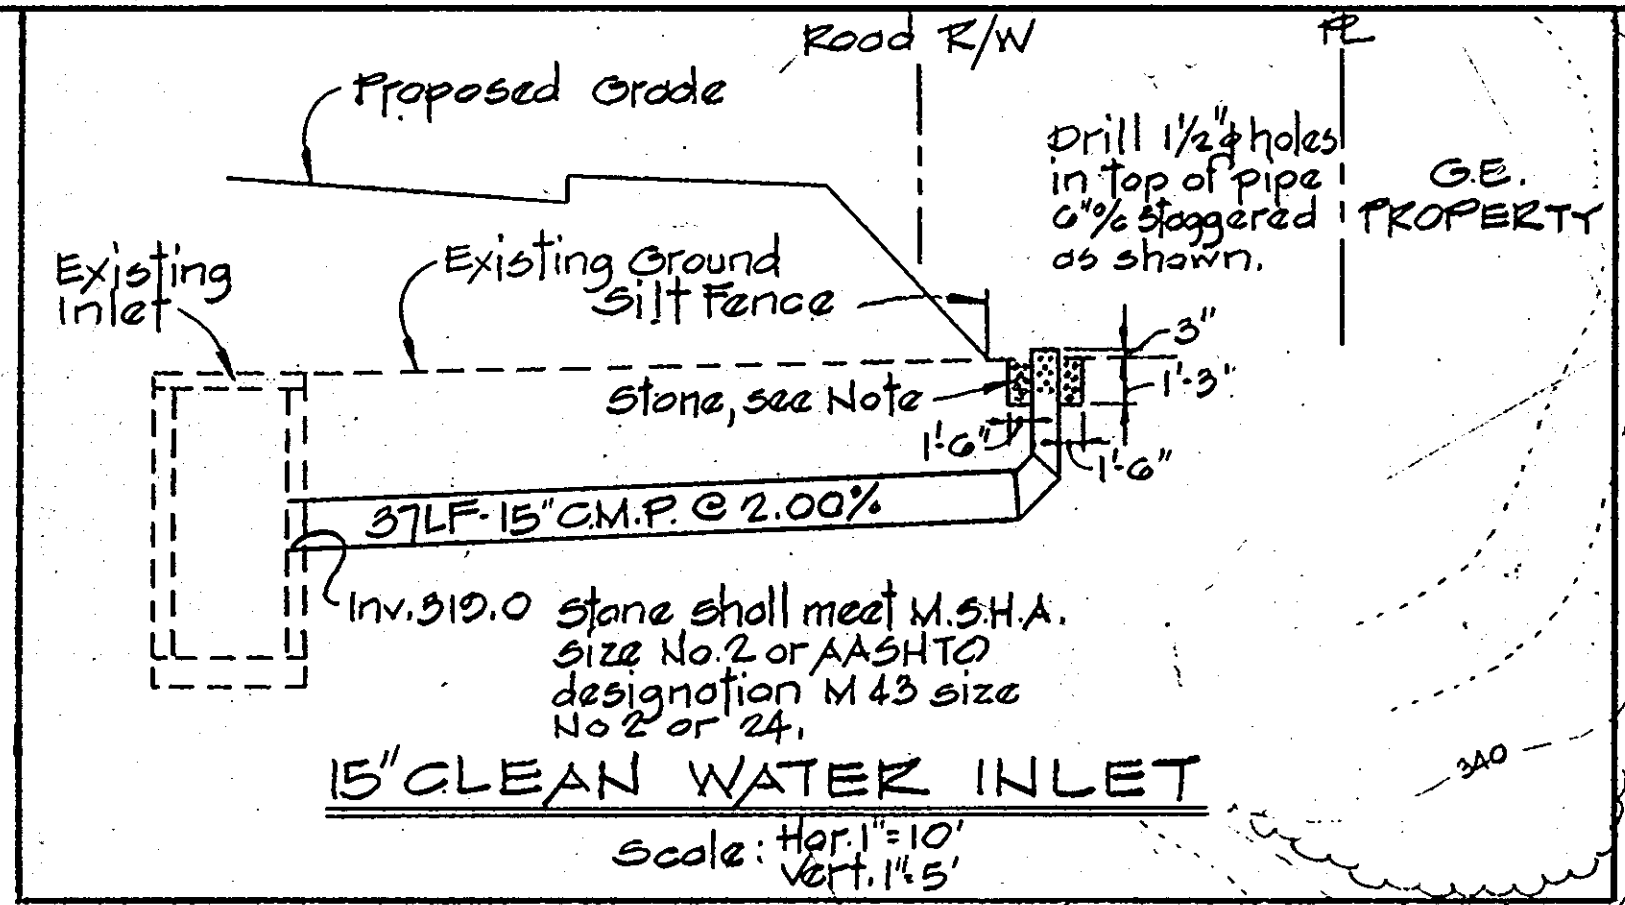 Road R/W
PL
Proposed Grade
Drill 1 1/2"ø holes
in top of pipe
6" o/c staggered
as shown.
G.E.
PROPERTY
Existing
Inlet
Existing Ground
Silt Fence
3"
1'-3"
Stone, see Note
1'-6"
1'-6"
37LF-15" C.M.P. @ 2.00%
Inv. 319.0
Stone shall meet M.S.H.A.
size No. 2 or AASHTO
designation M 43 size
No 2 or 24.
15" CLEAN WATER INLET
340
Scale: Hor. 1"=10'
Vert. 1"=5'